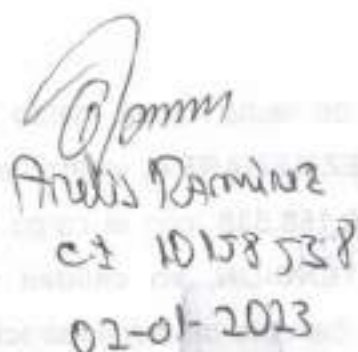 Arelis Ramirez
C.I 10158538
02-01-2023